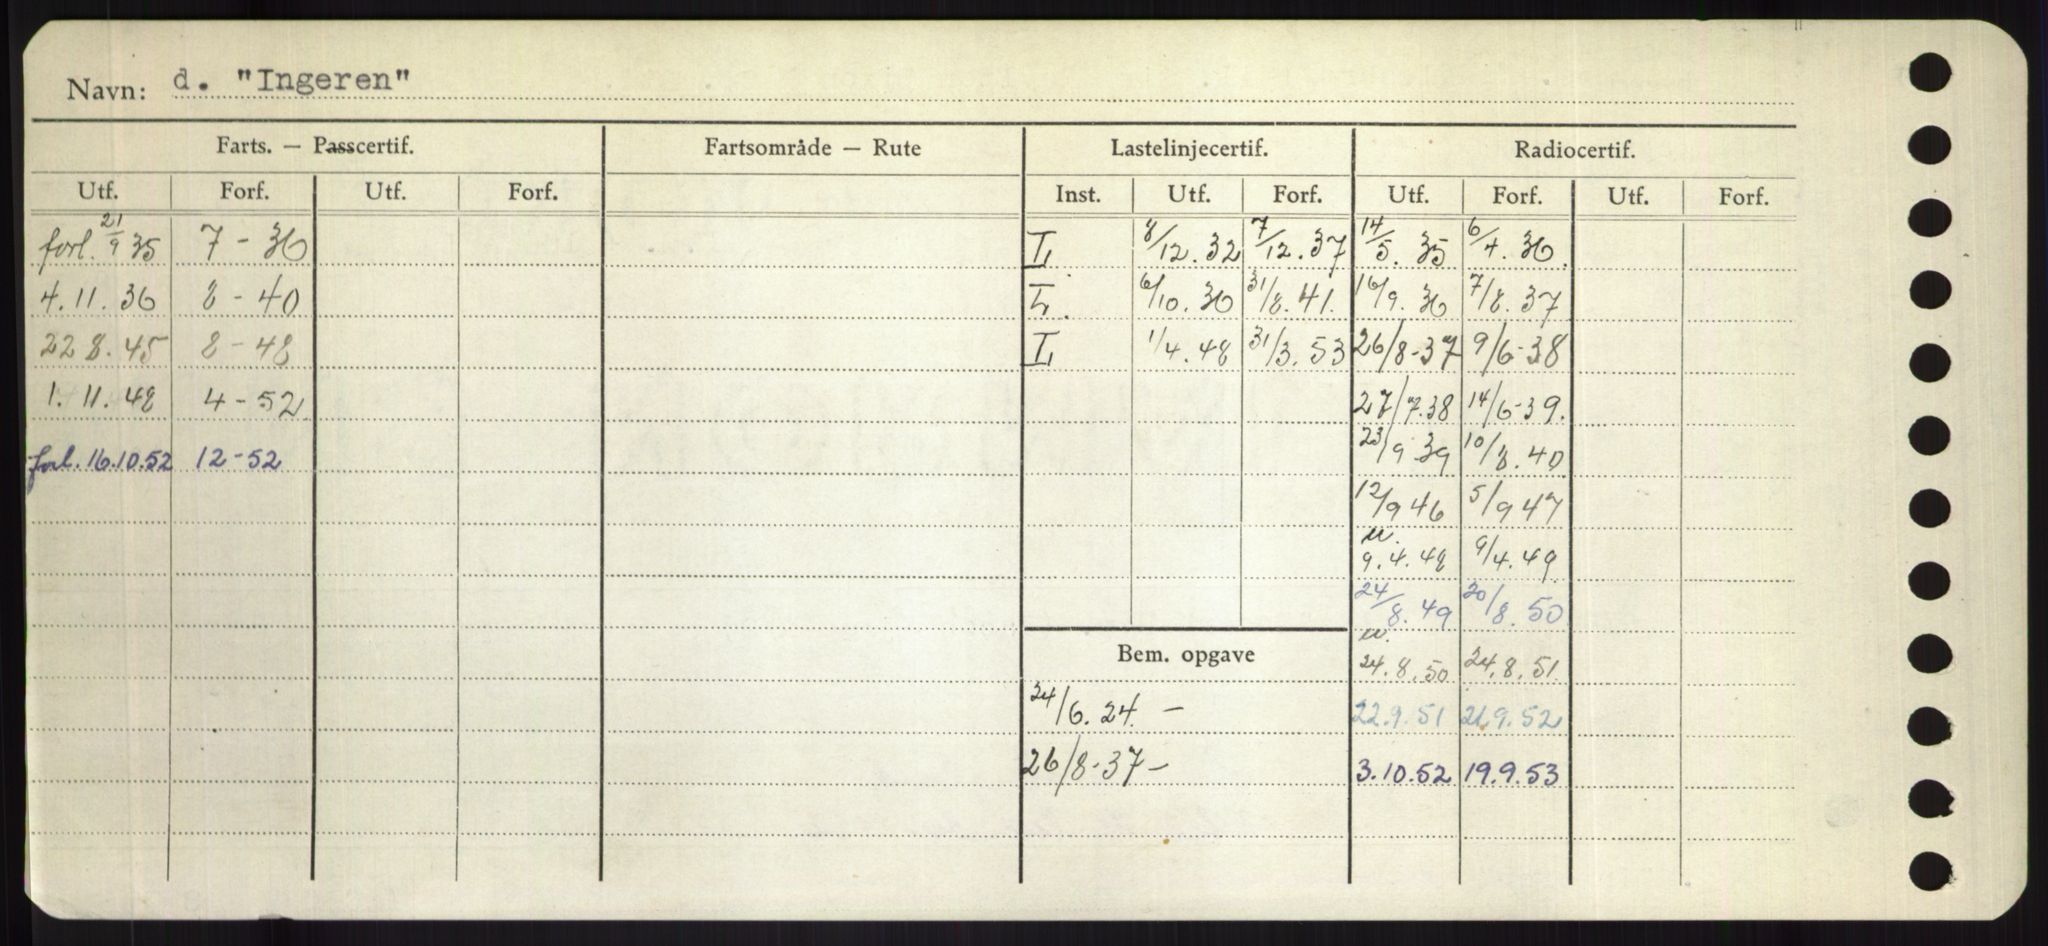 Navn: d. "Ingeren"
Farts. — Passcertif. Fartsområde — Rute Lastelinjecertif. Radiocertif.
Utf. Forf. Utf. Forf. Inst. Utf. Forf. Utf. Forf. Utf. Forf.
forl. 21/9 35 7 - 36 L 8/12. 32 7/12. 37 14/5. 35 6/4. 36.
4. 11. 36 8 - 40 L. 6/10. 36 31/8. 41. 16/9. 36 7/8. 37
22 8. 45 8 - 48 L 1/4. 48 31/3. 53 26/8-37 9/6-38
1. 11. 48 4 - 52 27/7.38 14/6-39.
23/9 39 10/8. 40
forl. 16.10.52 12-52
12/9 46 5/9 47
u.
9. 4. 48 9/4. 49
24/8. 49 20/8. 50
u.
Bem. opgave 24. 8. 50 24. 8. 51.
24/6. 24. — 22.9.51 21.9.52
26/8-37 — 3.10.52 19.9.53